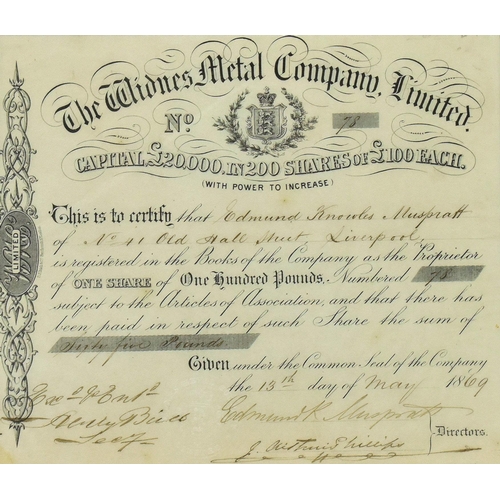 The Widnes Metal Company, Limited.
No. 78
CAPITAL £20,000. IN 200 SHARES OF £100 EACH.
(WITH POWER TO INCREASE)
This is to certify that Edmund Knowles Muspratt
of No 41 Old Hall Street, Liverpool,
is registered in the Books of the Company as the Proprietor
of ONE SHARE of One Hundred Pounds, Numbered 78
subject to the Articles of Association, and that there has
been paid in respect of such Share the sum of
Sixty five Pounds.
Given under the Common Seal of the Company
the 13th day of May 1869
LIMITED
Exd. & Entd.
Secy
Edmund K. Muspratt
J. Arthur Phillips
Directors.